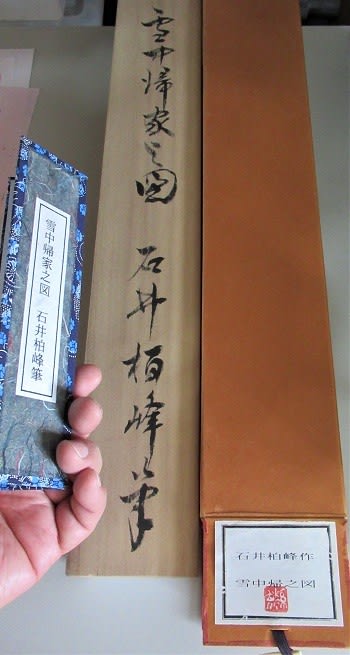 雪中帰家之図 石井柏峰筆
雪中帰家之図 石井柏峰筆
石井柏峰作
雪中帰之図